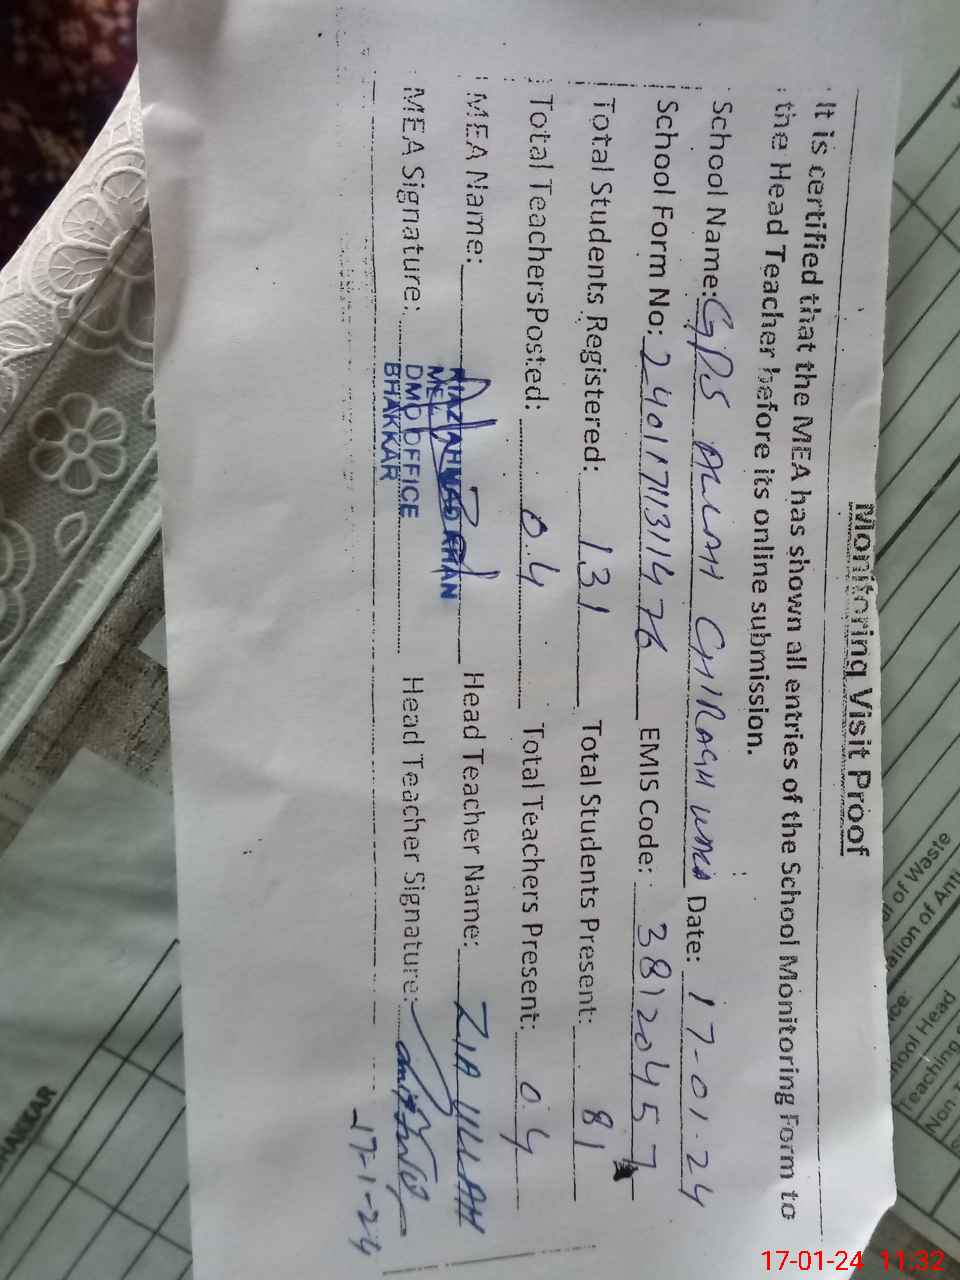 Monitoring Visit Proof
It is certified that the MEA has shown all entries of the School Monitoring Form to
the Head Teacher before its online submission.
School Name: GPS AULAH CHIRAGH WALA Date: 17-01-24
School Form No: 2401171131147 EMIS Code: 38120457
Total Students Registered: 131 Total Students Present: 81
Total TeachersPosted: 04 Total Teachers Present: 04
MEA Name: NIAZ AHMAD KHAN Head Teacher Name: ZIA ULLAH
MEA
MEA Signature: DMO OFFICE Head Teacher Signature:
BHAKKAR
-17-1-24
al of Waste
ation of Anti
ice:
hool Head
Teaching
Non T
HAKKAR
17-01-24 11:32